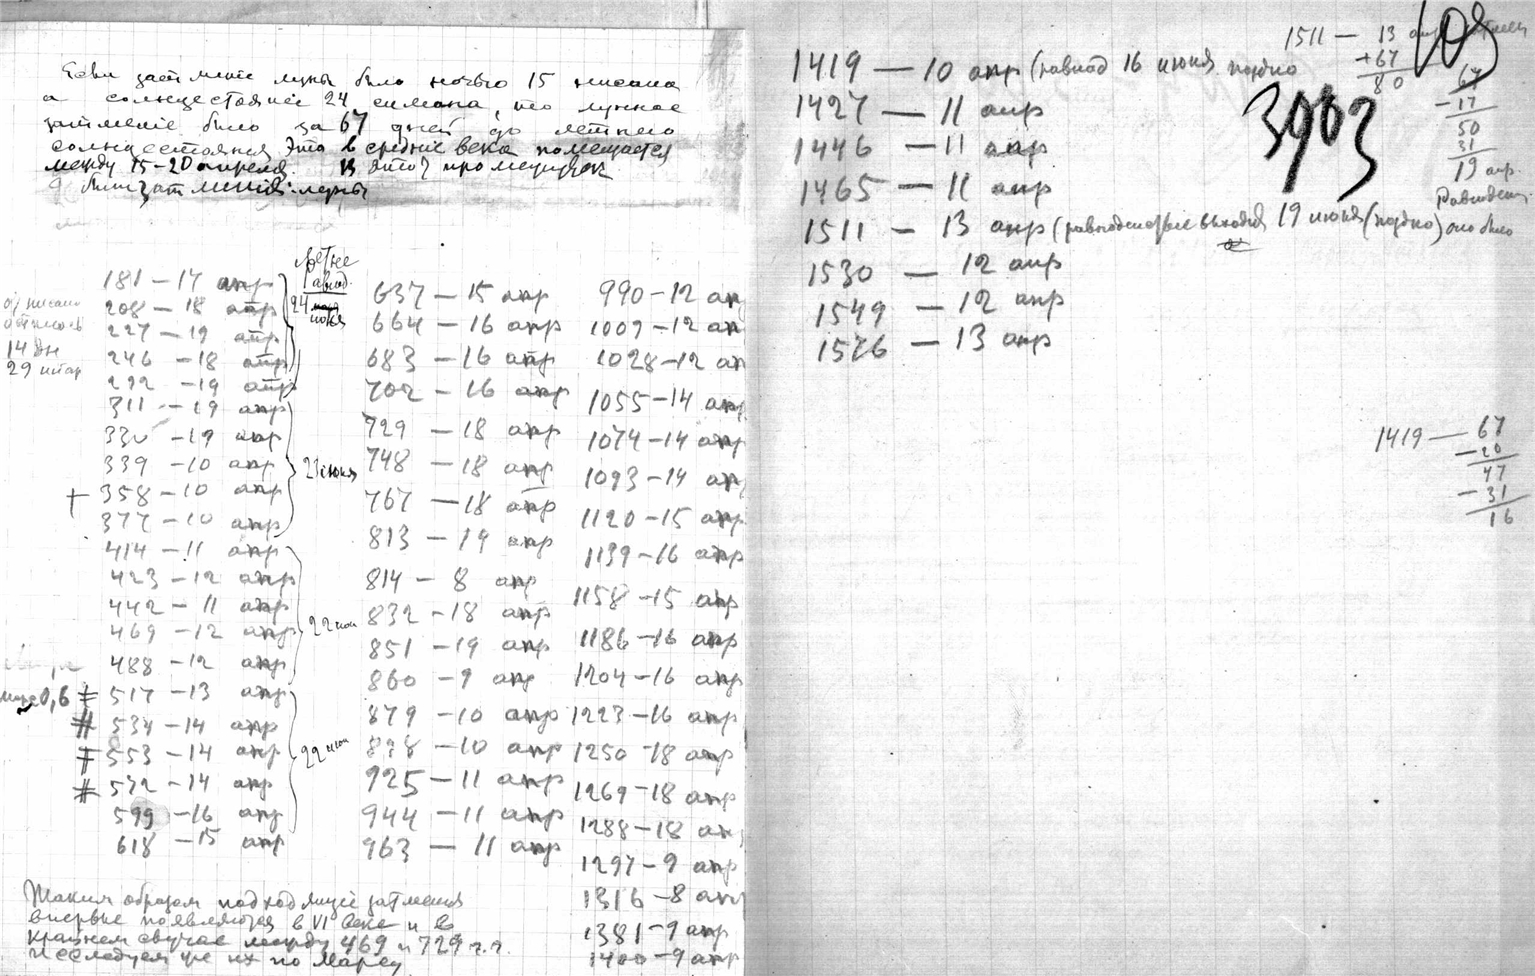 Если затмение луны было ночью 15 нисана
а солнцестояние 24 сивана, то лунное
затмение было за 67 дней до летнего
солнцестояния. Это в средние века помещается
между 15-20 апреля. В этот промежуток
были затмения луны
181 — 17 апр
208 — 18 апр
227 — 19 апр
246 — 18 апр
292 — 19 апр
311 — 19 апр
330 — 19 апр
339 — 10 апр
358 — 10 апр
377 — 10 апр
414 — 11 апр
423 — 12 апр
442 — 11 апр
469 — 12 апр
488 — 12 апр
517 — 13 апр
534 — 14 апр
553 — 14 апр
572 — 14 апр
599 — 16 апр
618 — 15 апр
от нисана
14 дн
Летнее
равнод.
24
июня
23 июня
22 июн
22 июн
0,6
637 — 15 апр
664 — 16 апр
683 — 16 апр
702 — 16 апр
729 — 18 апр
748 — 18 апр
767 — 18 апр
813 — 19 апр
814 — 8 апр
832 — 18 апр
851 — 19 апр
860 — 9 апр
879 — 10 апр
898 — 10 апр
925 — 11 апр
944 — 11 апр
963 — 11 апр
990 — 12 ап
1009 — 12 ап
1028 — 12 ап
1055 — 14 апр
1074 — 14 апр
1093 — 14 апр
1120 — 15 апр
1139 — 16 апр
1158 — 15 апр
1186 — 16 апр
1204 — 16 апр
1223 — 16 апр
1250 — 18 апр
1269 — 18 апр
1288 — 18 ап
1297 — 9 апр
1316 — 8 апр
1381 — 9 апр
1400 — 9 апр
Таким образом подходящие затмения
впервые появляются в VI веке и в
крайнем случае между 469 и 729 г.г.
Исследуем же их по Марсу
1419 — 10 апр (равнод 16 июня поздно
1427 — 11 апр
1446 — 11 апр
1465 — 11 апр
1511 — 13 апр (равноденствие выходит 19 июня (поздно) оно было
1530 — 12 апр
1549 — 12 апр
1576 — 13 апр
1511 — 13 апр
+67
80
108
3903
67
-17
50
31
19 апр
1419 — 67
-20
47
-31
16